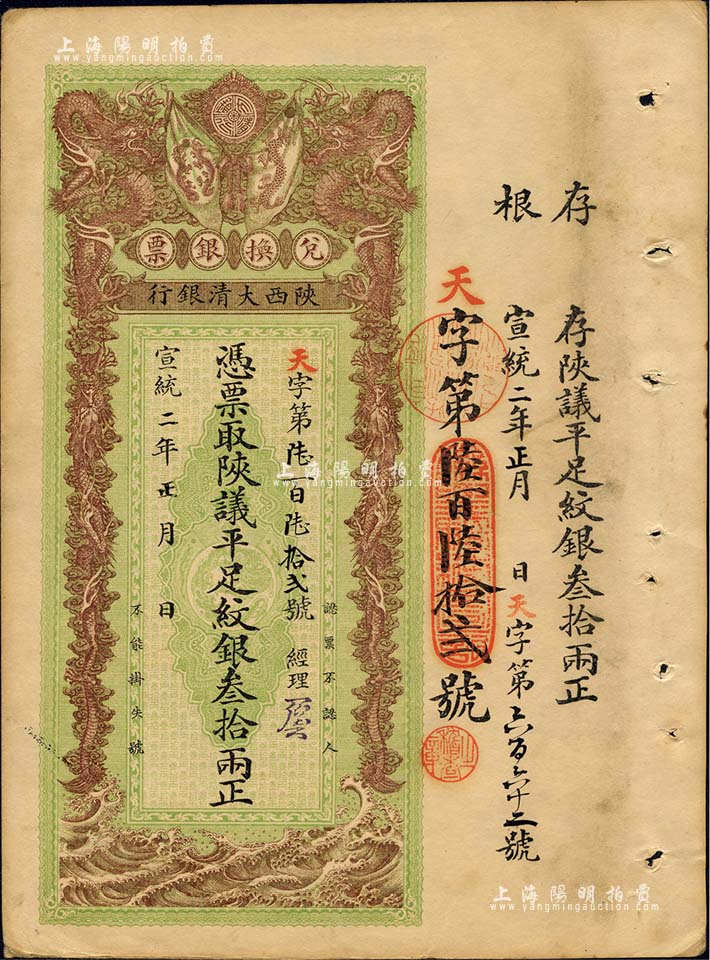 上海陽明拍賣
www.yangmingauction.com
存根
存陝議平足紋銀叁拾兩正
宣統二年正月 日天字第六百六十二號
天字第陸百陸拾弍號
票銀換兌
行銀清大西陝
天字第陸百陸拾弍號 經理
認票不認人
憑票取陝議平足紋銀叁拾兩正
宣統二年正月 日
不能掛失號
上海陽明拍賣
www.yangmingauction.com
上海陽明拍賣
www.yangmingauction.com